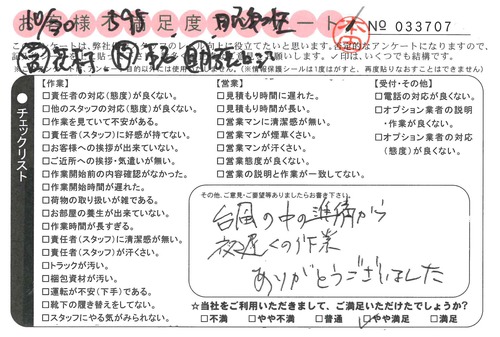 お客様満足度アンケート
№ 033707
チェックリスト
【作業】
□責任者の対応(態度)が良くない。
□他のスタッフの対応(態度)が良くない。
□作業を見ていて不安がある。
□責任者(スタッフ)に好感が持てない。
□お客様への挨拶が出来ていない。
□ご近所への挨拶・気遣いが無い。
□作業開始前の内容確認がなかった。
□作業開始時間が遅れた。
□荷物の取り扱いが雑である。
□お部屋の養生が出来ていない。
□作業時間が長すぎる。
□責任者(スタッフ)に清潔感が無い。
□責任者(スタッフ)が汗くさい。
□トラックが汚い。
□梱包資材が汚い。
□運転が不安(下手)である。
□靴下の履き替えをしてない。
□スタッフにやる気がみられない。
【営業】
□見積もり時間に遅れた。
□見積もり時間が長い。
□営業マンに清潔感が無い。
□営業マンが煙草くさい。
□営業マンが汗くさい。
□営業態度が良くない。
□営業の説明と作業が一致してない。
【受付・その他】
□電話の対応が良くない。
□オプション業者の説明
・作業が良くない。
□オプション業者の対応
(態度)が良くない。
その他、ご意見・ご要望等ありましたらお書き下さい。
台風の中の準備から
夜遅くの作業
ありがとうございました
☆当社をご利用いただきまして、ご満足いただけたでしょうか?
□不満 □やや不満 □普通 □やや満足 □満足